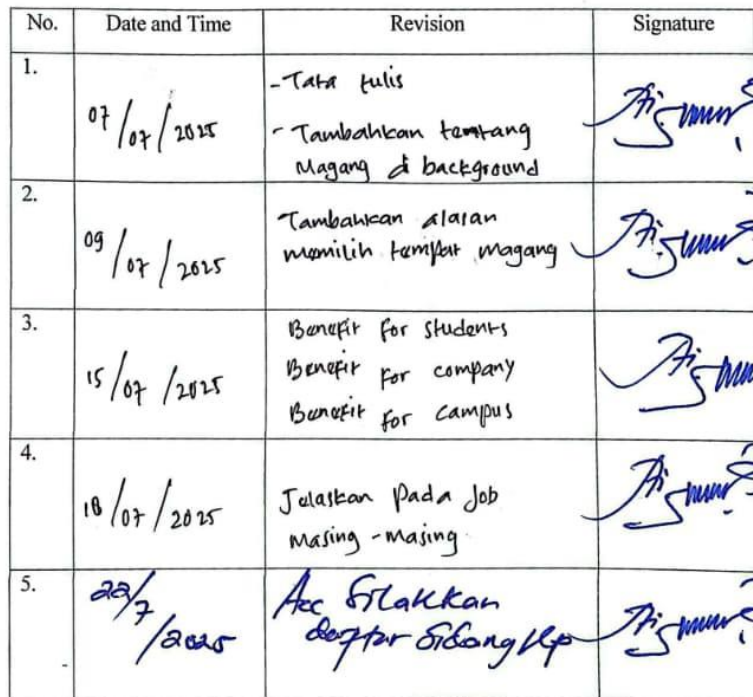 No. Date and Time Revision Signature
1. 07/07/2025 - Tata tulis
- Tambahkan tentang
Magang di background
2. 09/07/2025 Tambahkan alasan
memilih tempat magang
3. 15/07/2025 Benefit for students
Benefit for company
Benefit for campus
4. 18/07/2025 Jelaskan pada Job
masing-masing
5. 22/7/2025 Acc Silakkan
daftar Sidang Kp